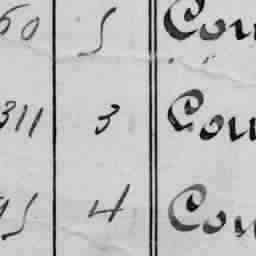 50 5 Cou
311 3 Cou
95 4 Cou